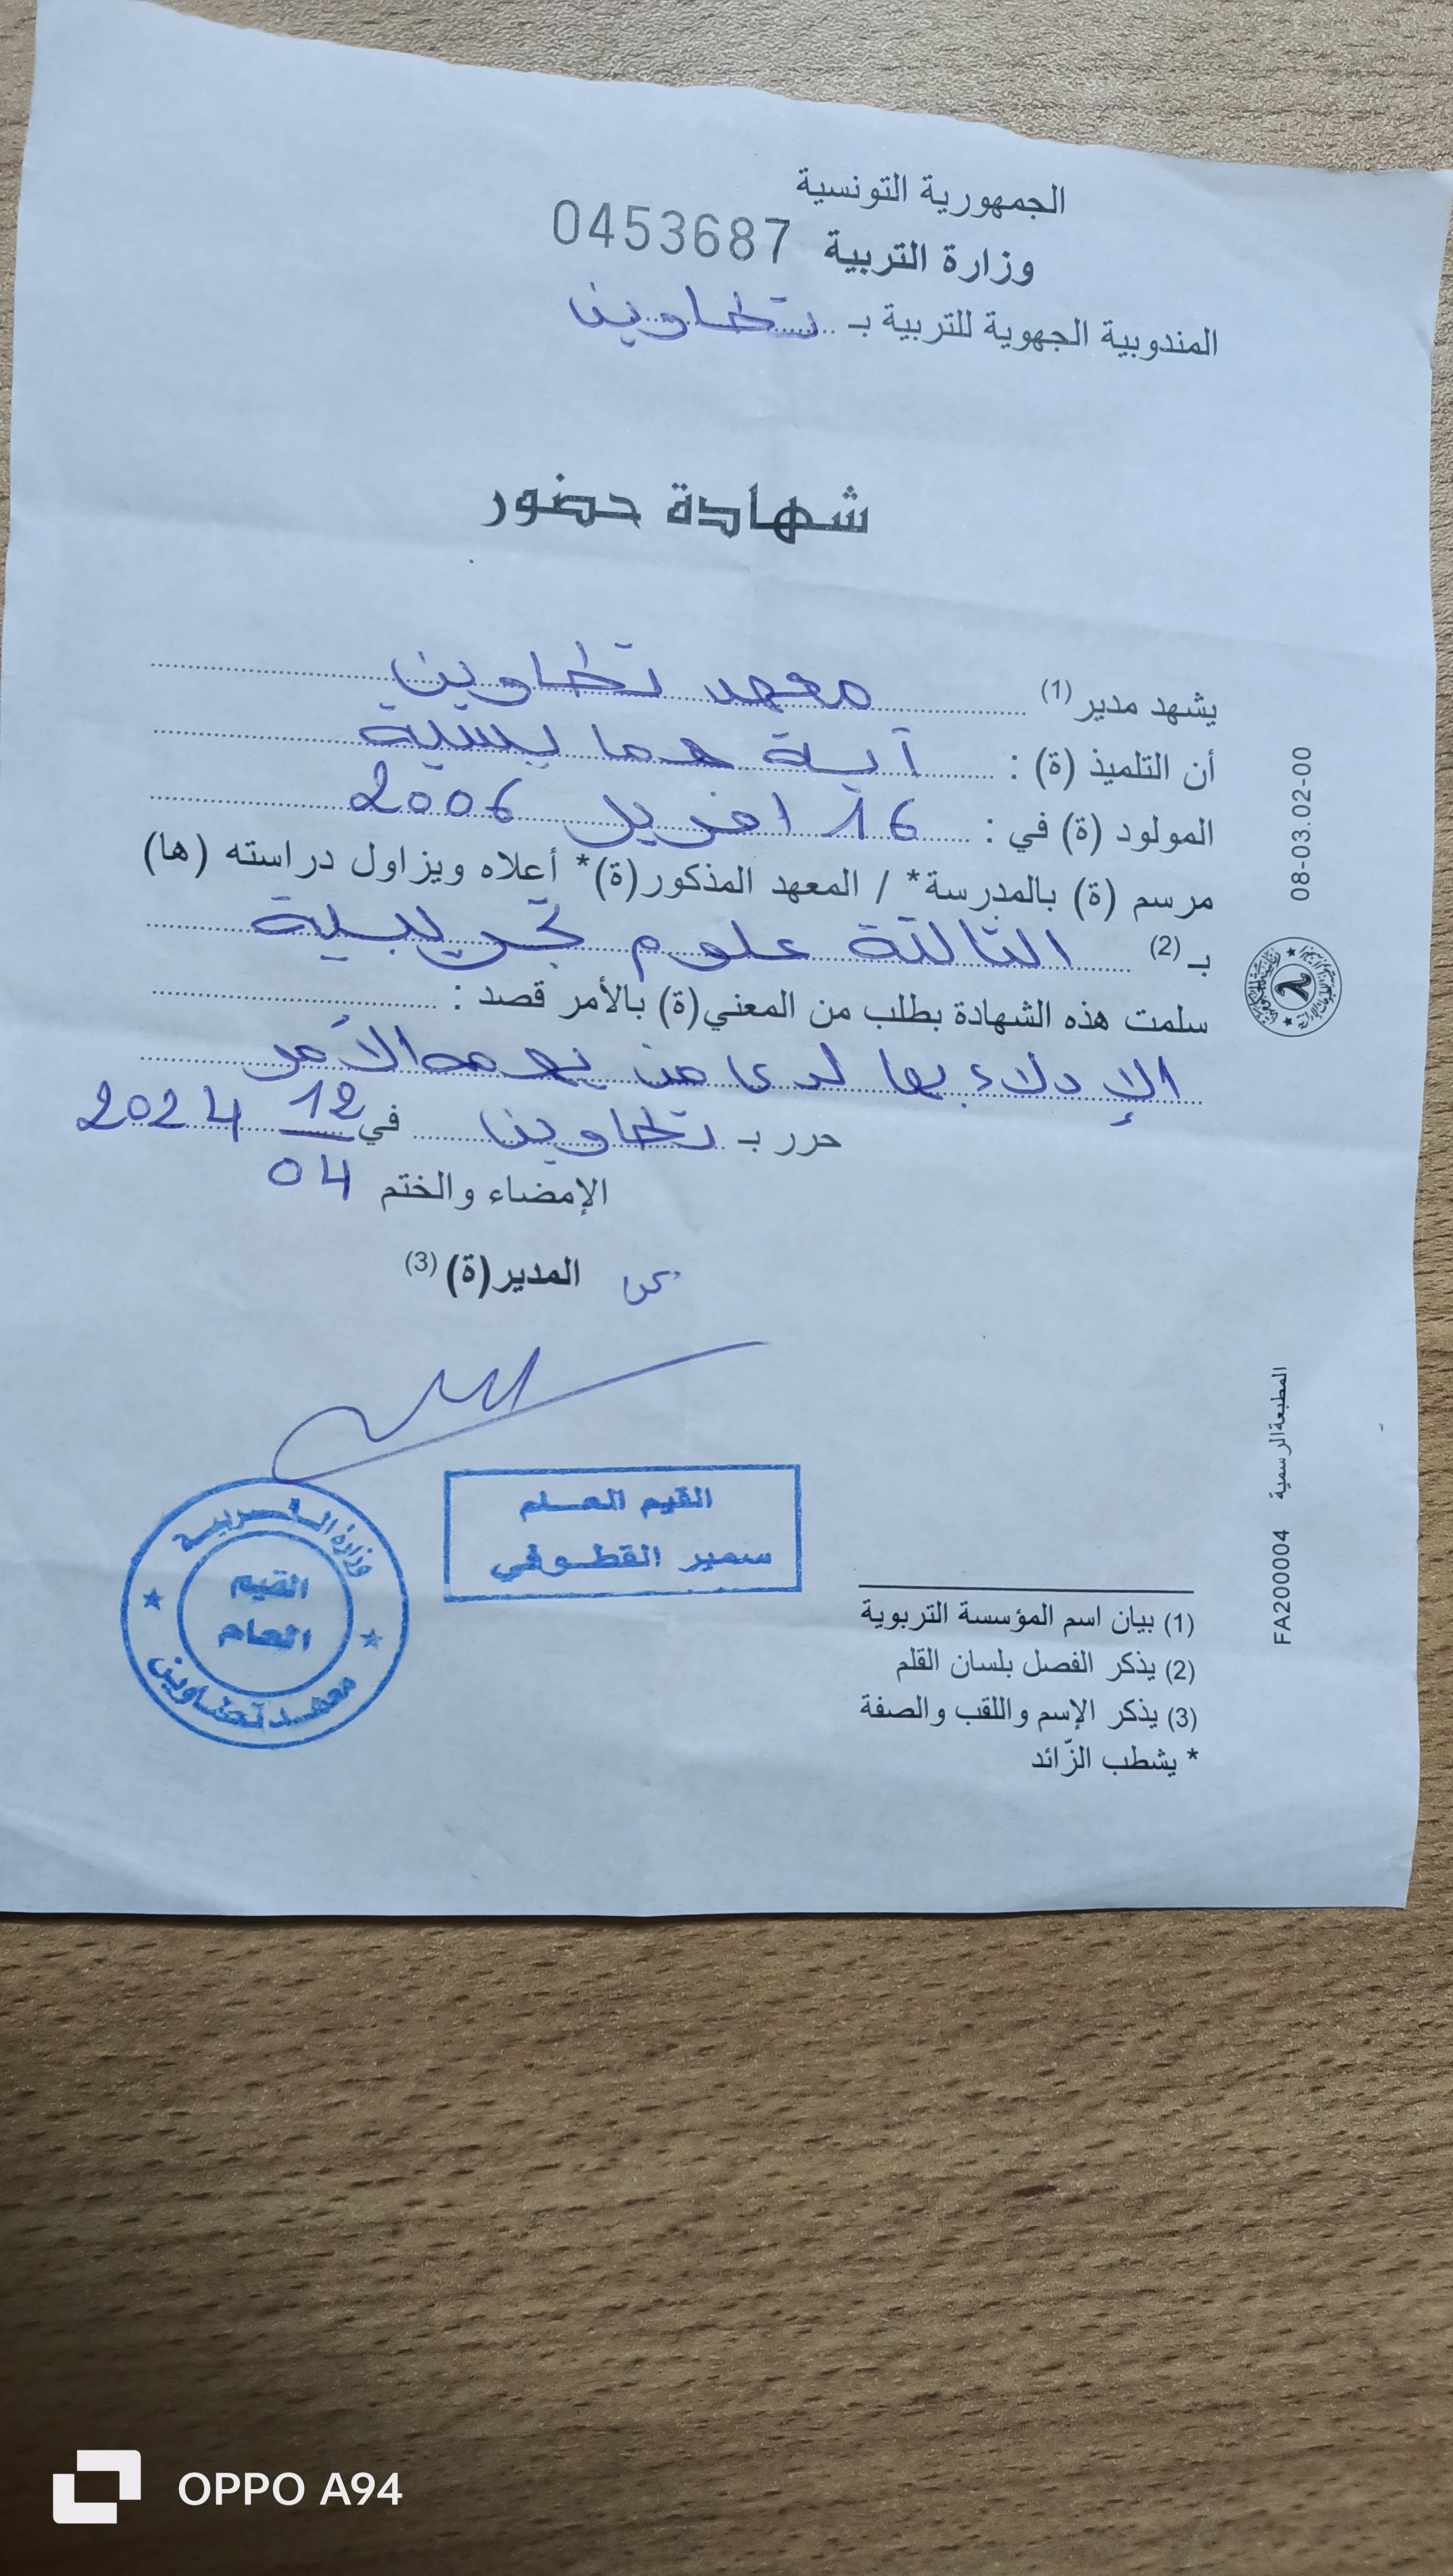 الجمهورية التونسية
وزارة التربية 0453687
المندوبية الجهوية للتربية بـ تطاوين
شهادة حضور
يشهد مدير (1) معهد تطاوين
أن التلميذ (ة) : آية همايسية
المولود (ة) في : 16 افريل 2006
مرسم (ة) بالمدرسة* / المعهد المذكور(ة)* أعلاه ويزاول دراسته (ها)
بـ (2) الثالثة علوم تجريبية
سلمت هذه الشهادة بطلب من المعني(ة) بالأمر قصد :
الإدلاء بها لدى من يهمه الأمر
حرر بـ تطاوين في 12 2024
04
الإمضاء والختم
عن المدير(ة) (3)
القيم العام
سمير القطوفي
وزارة التربية
القيم
العام
معهد تطاوين
(1) بيان اسم المؤسسة التربوية
(2) يذكر الفصل بلسان القلم
(3) يذكر الإسم واللقب والصفة
* يشطب الزّائد
08-03.02-00
FA200004 المطبعة الرسمية
OPPO A94